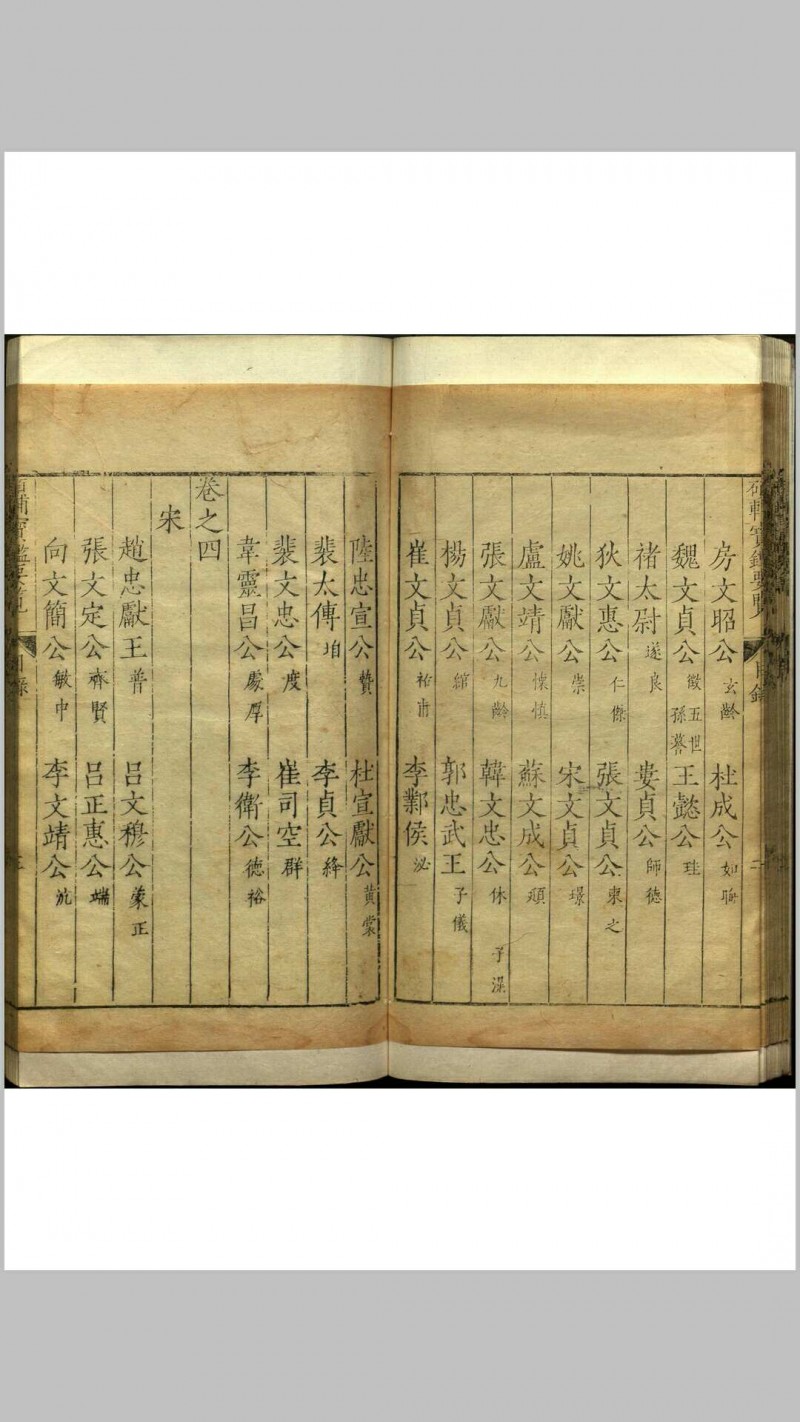 房文昭公玄齡 杜成公如晦
魏文貞公徵五世孫謩 王懿公珪
褚太尉遂良 婁貞公師德
狄文惠公仁傑 張文貞公柬之
姚文獻公崇 宋文貞公璟
盧文靖公懷慎 蘇文成公頲
張文獻公九齡 韓文忠公休 子滉
楊文貞公綰 郭忠武王子儀
崔文貞公祐甫 李鄴侯泌
陸忠宣公贄 杜宣獻公黃裳
裴太傅垍 李貞公絳
裴文忠公度 崔司空群
韋靈昌公處厚 李衛公德裕
卷之四
宋
趙忠獻王普 呂文穆公蒙正
張文定公齊賢 呂正惠公端
向文簡公敏中 李文靖公沆